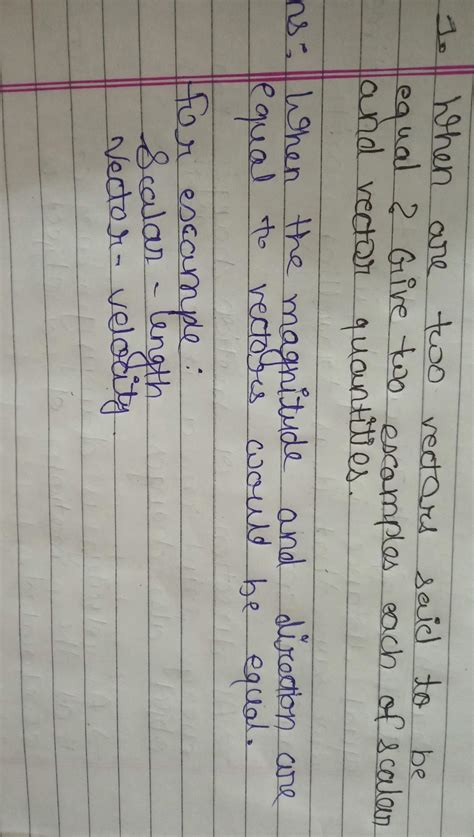 1. When are two vectors said to be
equal? Give two escamples each of scalar
and vector quantities.
ns: When the magnitude and direction are
equal to vectors would be equal.
for escample:
Scalar - length
Vector - velocity